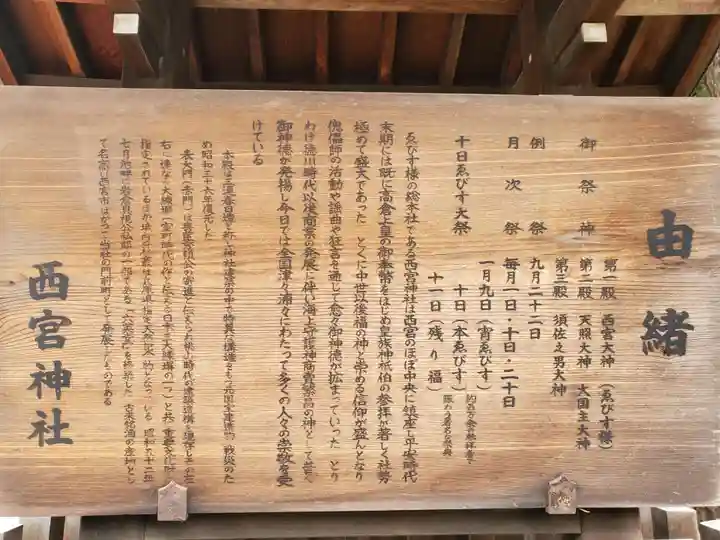 由緒
御祭神
第一殿 西宮大神 (ゑびす様)
第二殿 天照大神 大国主大神
第三殿 須佐之男大神
例祭 九月二十二日
月次祭 毎月一日・十日・二十日
十日ゑびす大祭
一月九日(宵ゑびす)
十日(本ゑびす)
十一日(残り福)
ゑびす様の総本社である西宮神社は西宮のほぼ中央に鎮座し平安時代
末期には既に高倉上皇の御奉幣をはじめ皇族神祇伯の参拝が著しく社勢
極めて盛大であった とくに中世以後福の神と崇める信仰が盛んとなり
傀儡師の活動や謡曲や狂言を通じて愈々御神徳が拡まっていった とり
わけ徳川時代以後商業の発展に伴い海上守護神商売繁昌の神として普く
御神徳が発揚し今日では全国津々浦々にわたって多くの人々の崇敬を受
けている
本殿は三連春日造と称し神社建築の中で特異な構造をもつ元国宝建造物 戦災のた
め昭和三十六年復元した
表大門(赤門)は豊臣秀頼公の寄進と伝えられ桃山時代の建築遺構を
右に連なる大練塀(室町時代の作と伝えられ日本三大練塀の一つ)と共に重要文化財に
指定されているほか境内のえびすの森は兵庫県指定の天然記念物となっている 昭和五十二年
て名高い西宮市はかつて当社の門前町として発展したものである
西宮神社